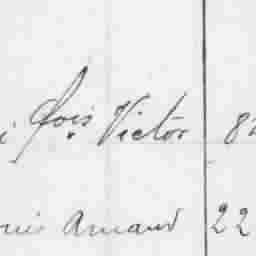 i fois Victor 8
uis Arnaud 22